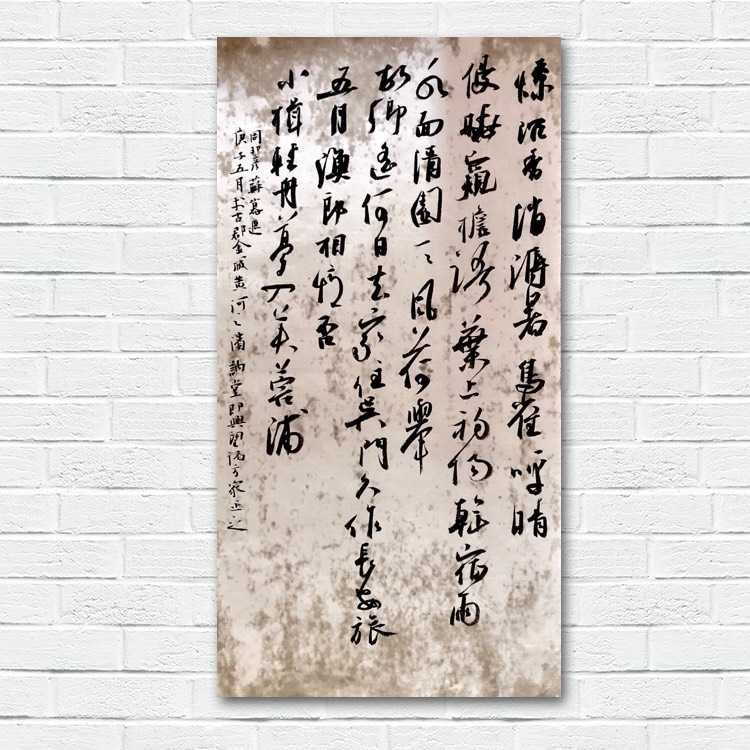 燎沉香消溽暑鳥雀呼晴
侵曉窺檐語葉上初陽乾宿雨
水面清圓一一風荷舉
故鄉遙何日去家住吳門久作長安旅
五月漁郎相憶否
小楫輕舟夢入芙蓉浦
周邦彥蘇幕遮
庚子五月古郡金城黃河之濱訥堂即興望諸方家正之